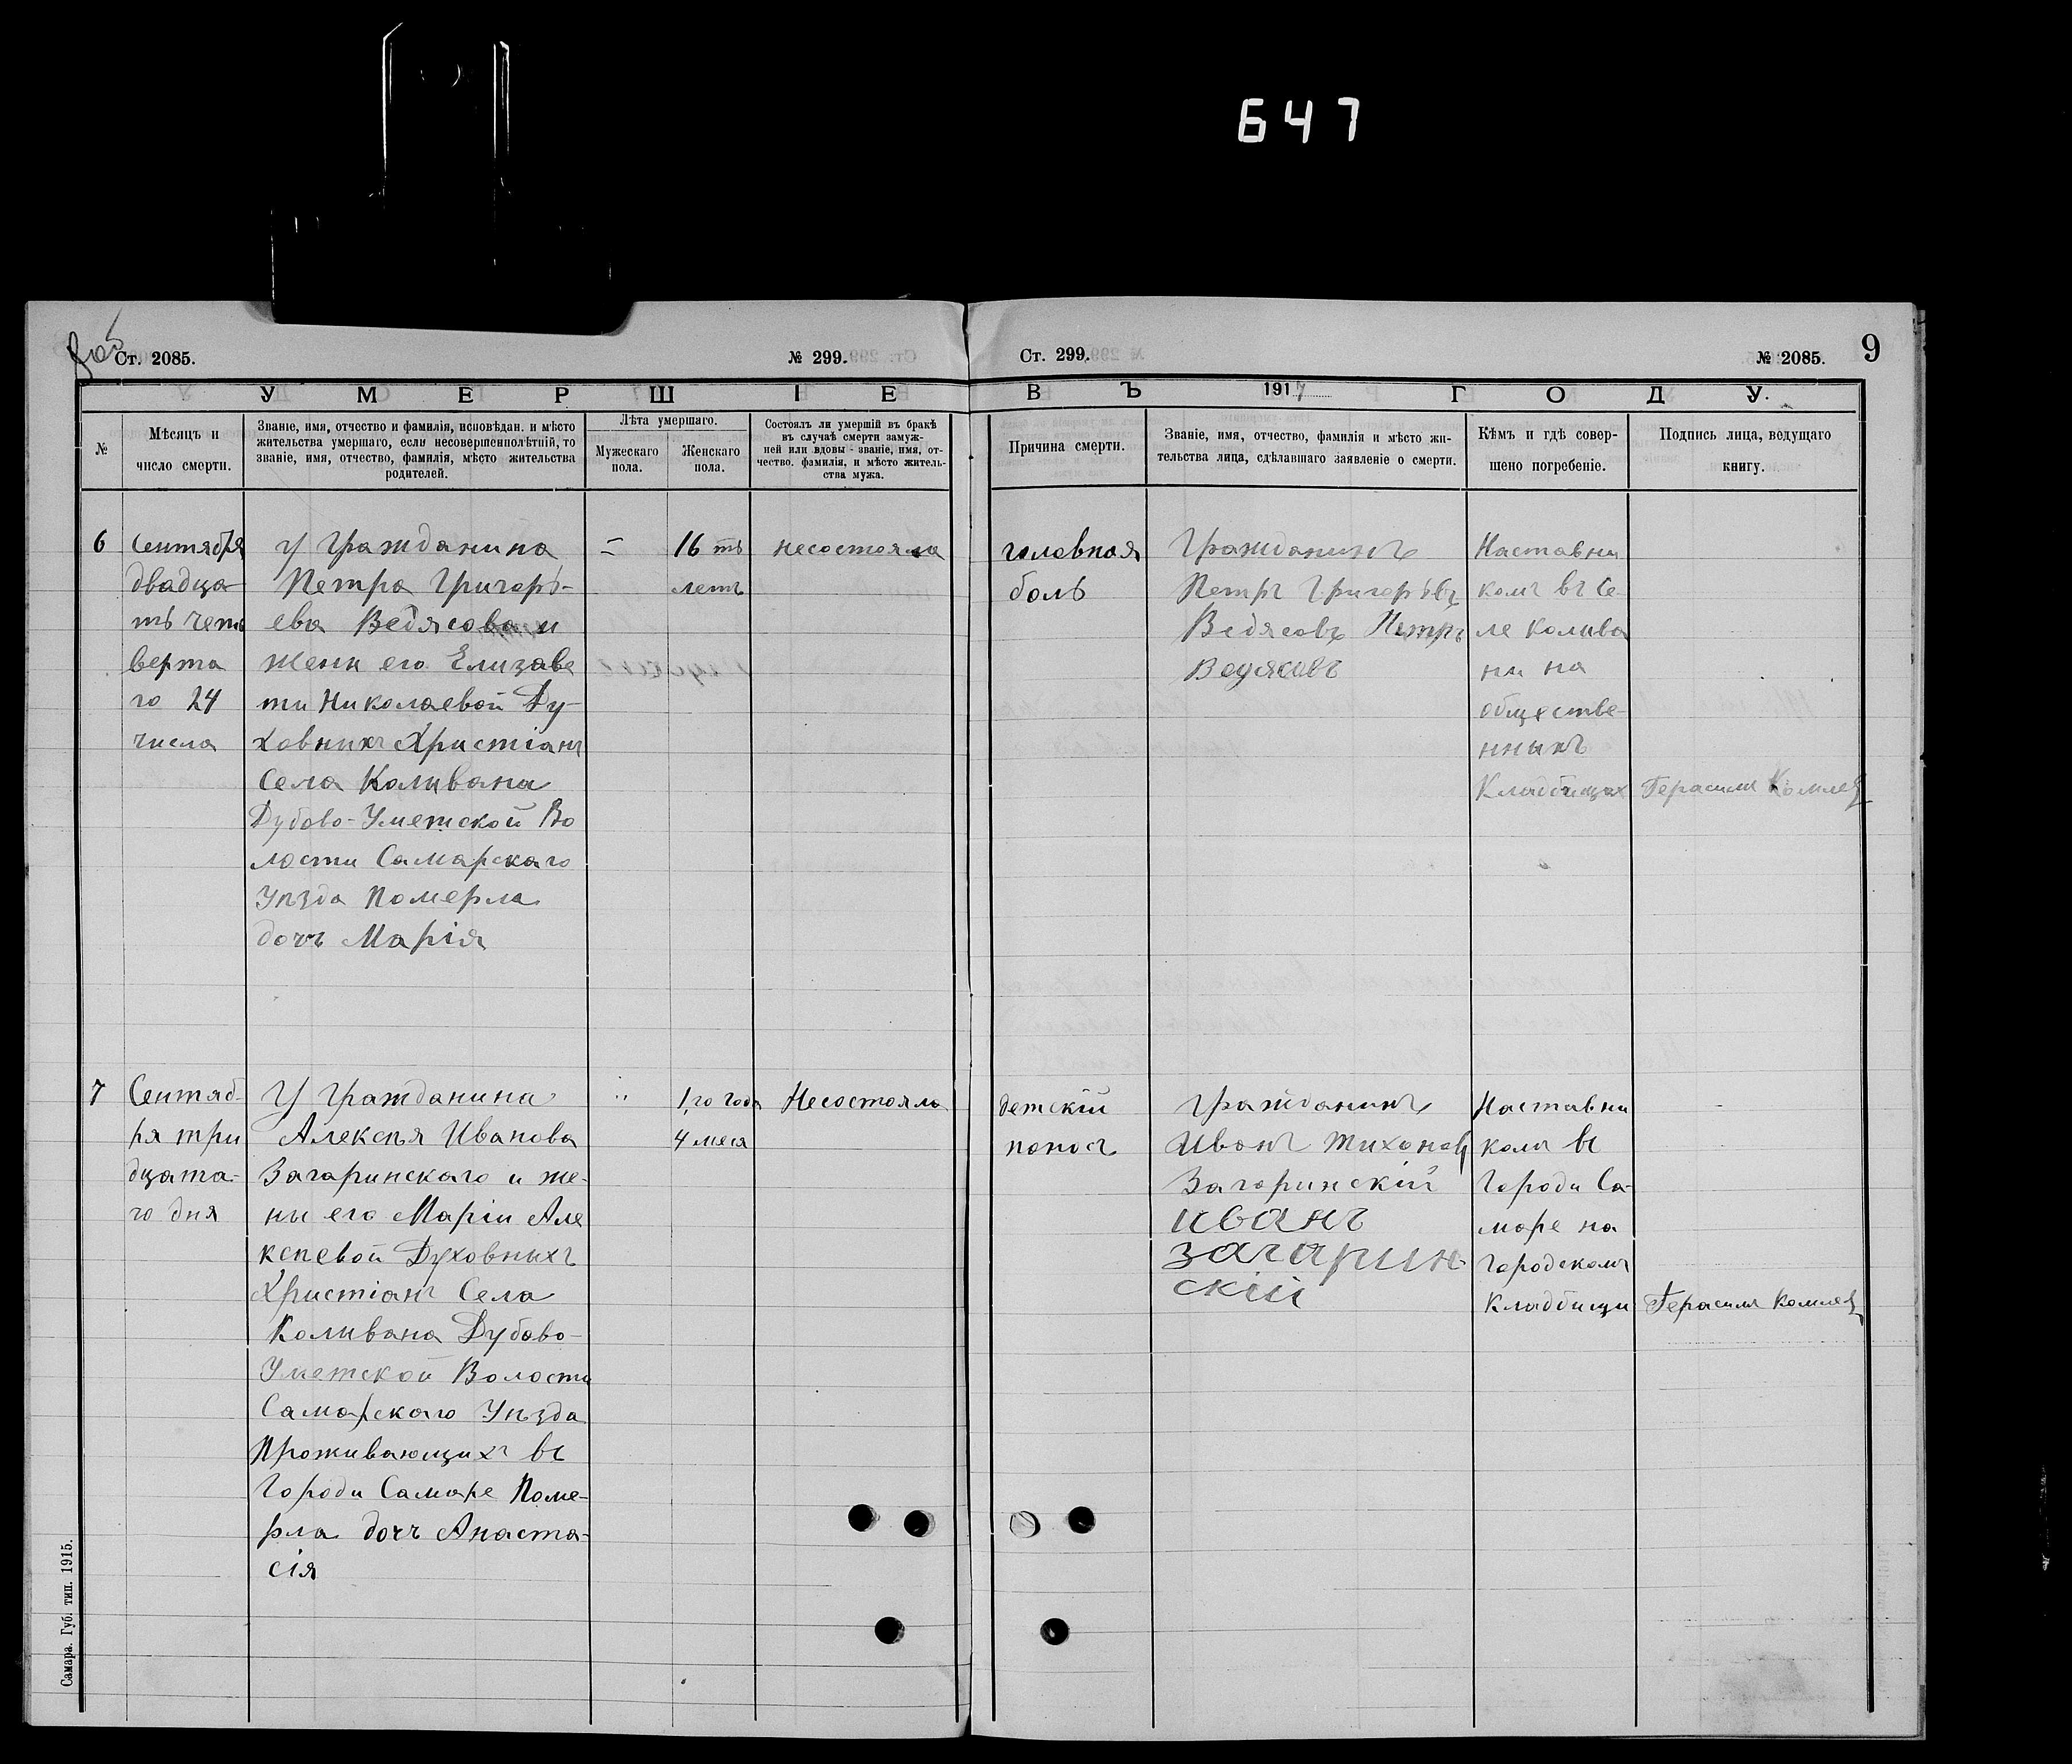 647
Ст. 2085.
№ 299.
Ст. 299.
№ 2085.
9
УМЕРШІЕ
ВЪ 1917 ГОДУ.
№
Мѣсяцъ и
число смерти.
Званіе, имя, отчество и фамилія, исповѣдан. и мѣсто
жительства умершаго, если несовершеннолѣтній, то
званіе, имя, отчество, фамилія, мѣсто жительства
родителей.
Лѣта умершаго.
Мужескаго
пола.
Женскаго
пола.
Состоялъ ли умершій въ бракѣ
въ случаѣ смерти замуж-
ней или вдовы - званіе, имя, от-
чество. фамилія, и мѣсто житель-
ства мужа.
Причина смерти.
Званіе, имя, отчество, фамилія и мѣсто жи-
тельства лица, сдѣлавшаго заявленіе о смерти.
Кѣмъ и гдѣ совер-
шено погребеніе.
Подпись лица, ведущаго
книгу.
6
Сентября
двадца
ть чет
верта
го 24
числа
У Гражданина
Петра Григорь-
ева Ведясова и
жени его Елизаве
ти Николаевой Ду-
ховнихъ Христіанъ
Села Коливана
Дубово-Уметской Во
лости Самарскаго
Уѣзда Померла
дочъ Марія
16 ть
леть
несостояла
головная
боль
Гражданинъ
Петръ Григорьевъ
Ведясовъ Петръ
Ведясовъ
Наставни
комъ въ Се
ле Колива
ни на
обществе-
ннихъ
Кладбищах
Герасим Комлев
7
Сентяб-
ря три
дцата-
го дня
У Гражданина
Алексѣя Иванова
Загаринскаго и же-
ны его Маріи Але
ксѣевой Духовныхъ
Христіанъ Села
Коливана Дубово-
Уметской Волости
Самарскаго Уѣзда
Проживающихъ въ
Городи Самаре Поме-
рла дочъ Анаста-
сія
1,го года
4 меся
Несостояла
детскій
поносъ
Гражданинъ
Иванъ Тихоновъ
Загоринскій
иванъ
загарин
скій
Наставни
комъ въ
Городи Са-
маре на
Городскомъ
Кладбищи
Герасим Комлев
Самара. Губ. тип. 1915.